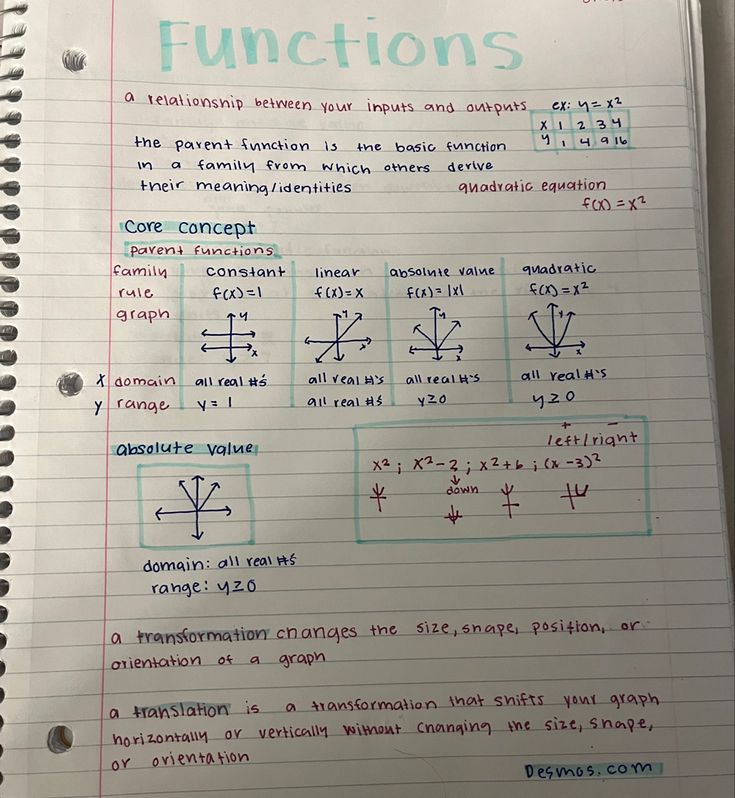 Functions
a relationship between your inputs and outputs ex: y = x²
x 1 2 3 4
y 1 4 9 16
the parent function is the basic function
in a family from which others derive
their meaning/identities quadratic equation
f(x) = x²
Core concept
parent functions
family constant linear absolute value quadratic
rule f(x)=1 f(x)=x f(x)=|x| f(x)=x²
graph y x y x y x y x
x domain all real #'s all real #'s all real #'s all real #'s
y range y=1 all real #'s y≥0 y≥0
absolute value
+ −
left/right
x² ; x²-2 ; x²+6 ; (x-3)²
down
domain: all real #'s
range: y≥0
a transformation changes the size, shape, position, or
orientation of a graph
a translation is a transformation that shifts your graph
horizontally or vertically without changing the size, shape,
or orientation
Desmos.com